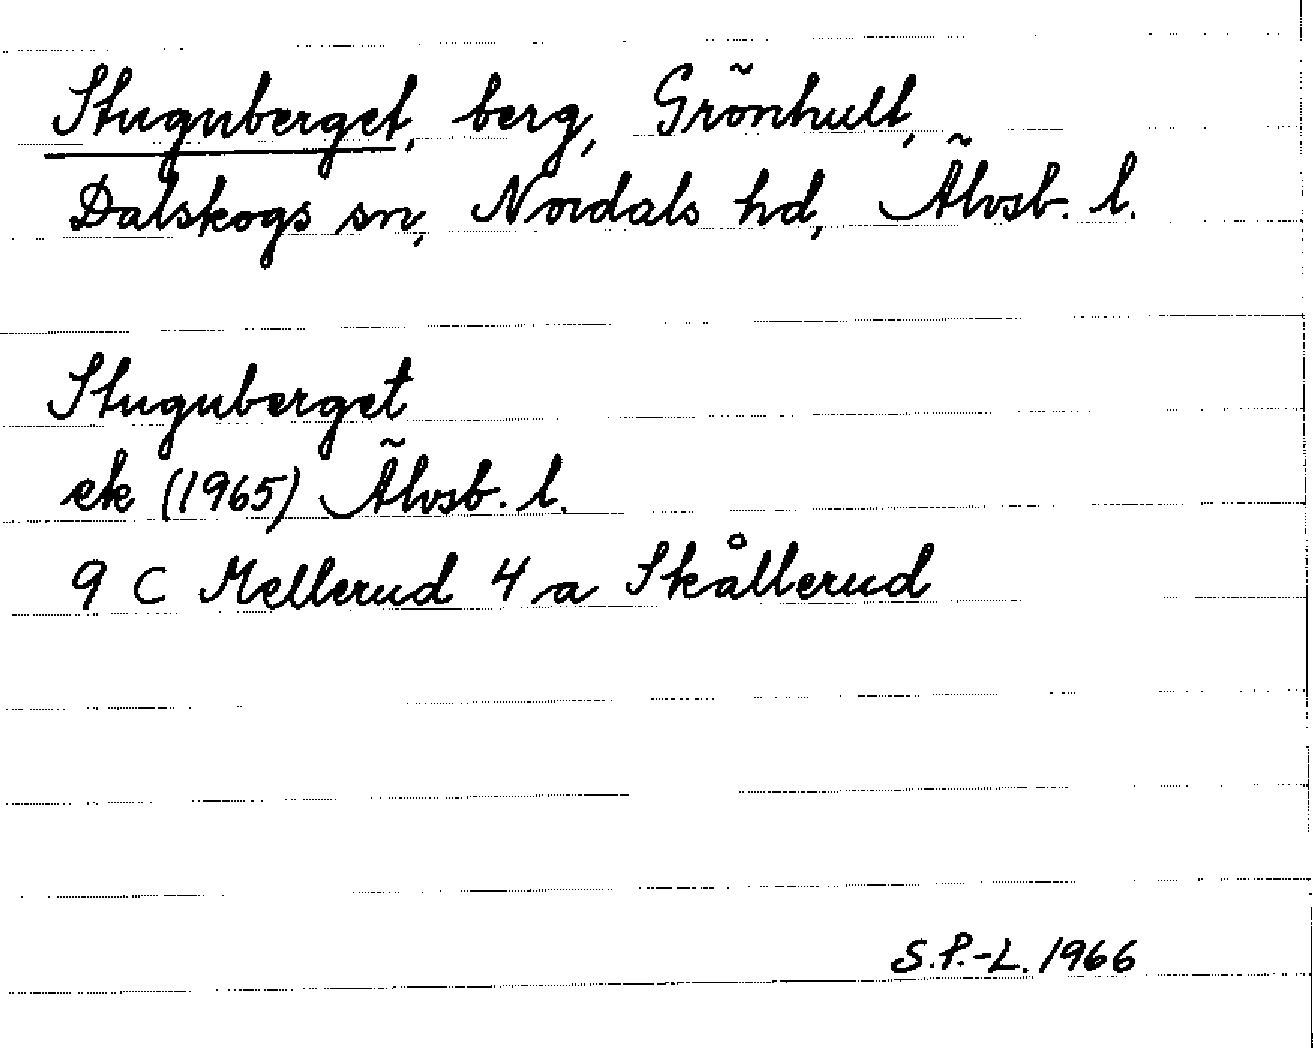 Stuguberget, berg, Grönhult,
Dalskogs sn, Nordals hd, Älvsb. l.
Stuguberget
ek (1965) Älvsb. l.
9 C Mellerud 4 a Skållerud
S.P.-L. 1966